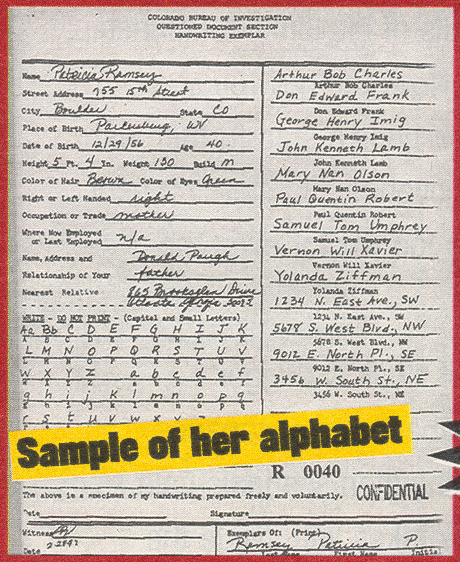 COLORADO BUREAU OF INVESTIGATION
QUESTIONED DOCUMENT SECTION
HANDWRITING EXEMPLAR
Name Patricia Ramsey
Street Address 755 15th Street
City Boulder State CO
Place of Birth Parkersburg, WV
Date of Birth 12/29/56 Age 40.
Height 5 Ft. 4 In. Weight 130 Build M
Color of Hair Brown Color of Eyes Green
Right or Left Handed right
Occupation or Trade mother
Where Now Employed
or Last Employed n/a
Name, Address and Donald Paugh
Relationship of Your father
Nearest Relative Drive
Atlanta
WRITE - DO NOT PRINT - (Capital and Small Letters)
Aa Bb C D E F G H I J K
A B C D E F G H I J K
L M N O P Q R S T U V
L M N O P Q R S T U V
W X Y Z a b c d e f
W X Y Z a b c d e f
g h i j k l m n o p q
g h i j k l m n o p q
Arthur Bob Charles
Arthur Bob Charles
Don Edward Frank
Don Edward Frank
George Henry Imig
George Henry Imig
John Kenneth Lamb
John Kenneth Lamb
Mary Nan Olson
Mary Nan Olson
Paul Quentin Robert
Paul Quentin Robert
Samuel Tom Umphrey
Samuel Tom Umphrey
Vernon Will Xavier
Vernon Will Xavier
Yolanda Ziffman
Yolanda Ziffman
1234 N. East Ave., SW
1234 N. East Ave., SW
5678 S. West Blvd., NW
5678 S. West Blvd., NW
9012 E. North Pl., SE
9012 E. North Pl., SE
3456 W. South St., NE
3456 W. South St., NE
Sample of her alphabet
R 0040
The above is a specimen of my handwriting prepared freely and voluntarily. CONFIDENTIAL
Date Signature
Witness Exemplars Of: (Print)
Date Ramsey Patricia P.
Last Name First Name Initial